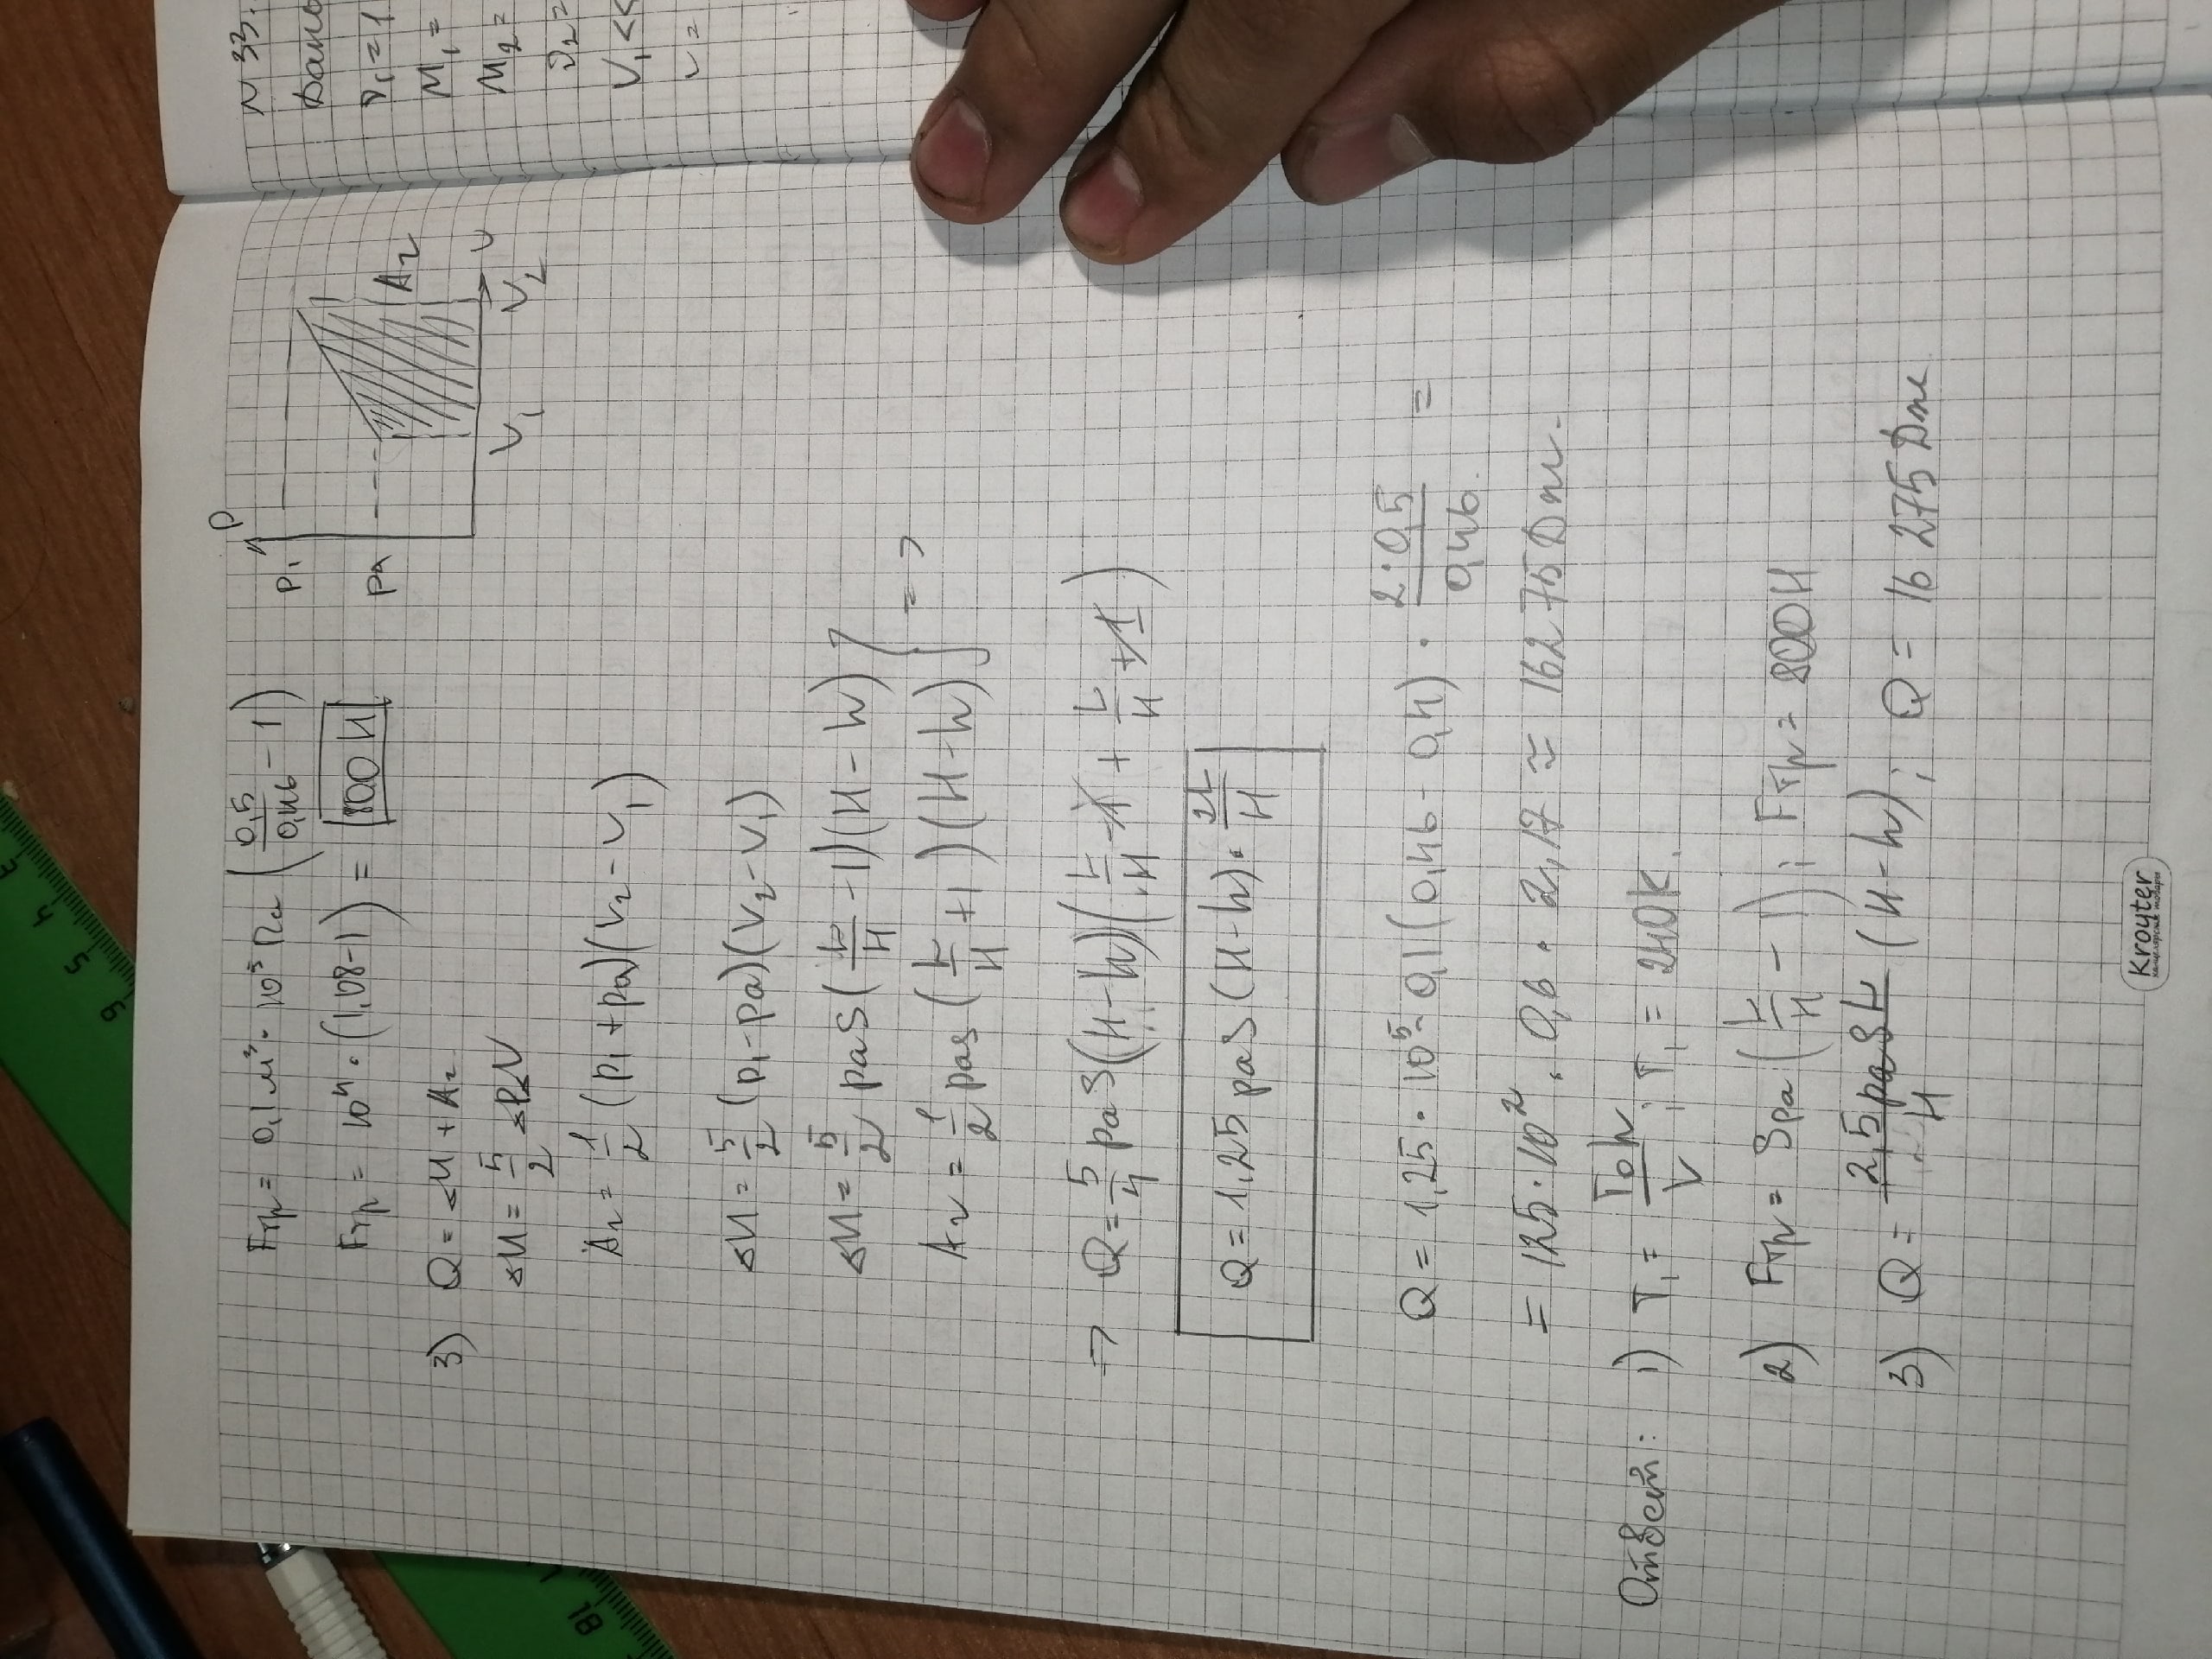 Fтр = 0,1 м³ · 10⁵ Па (0,5/0,46 - 1)
Fтр = 10⁴ · (1,08-1) = 800 Н
3) Q = ΔU + Aг
ΔU = 5/2 ΔPΔV
Aг = 1/2 (p₁ + pa)(V₂ - V₁)
ΔU = 5/2 (p₁ - pa)(V₂ - V₁)
ΔU = 5/2 paS(L/H - 1)(H - h)
Aг = 1/2 paS (L/H + 1)(H - h) =>
=> Q = 5/4 paS(H - h)(L/H - 1 + L/H + 1)
Q = 1,25 paS(H - h) · 2L/H
Q = 1,25 · 10⁵ · 0,1(0,46 - 0,4) · 2·0,5/0,46 =
= 125·10² · 0,6 · 2,17 ≈ 16275 Дж.
Ответ: 1) T₁ = T₀h/V ; T₁ = 240K.
2) Fтр = Spa (L/H - 1) ; Fтр = 800 Н
3) Q = 2,5paSL/H (H - h) ; Q = 16 275 Дж
p
p₁
pa
Aг
V₁
V₂
V
N 33.
Дано
ν₁ = 1
M₁ =
M₂ =
ν₂ =
V₁ <<
V =
Krouter
3
4
5
6
18